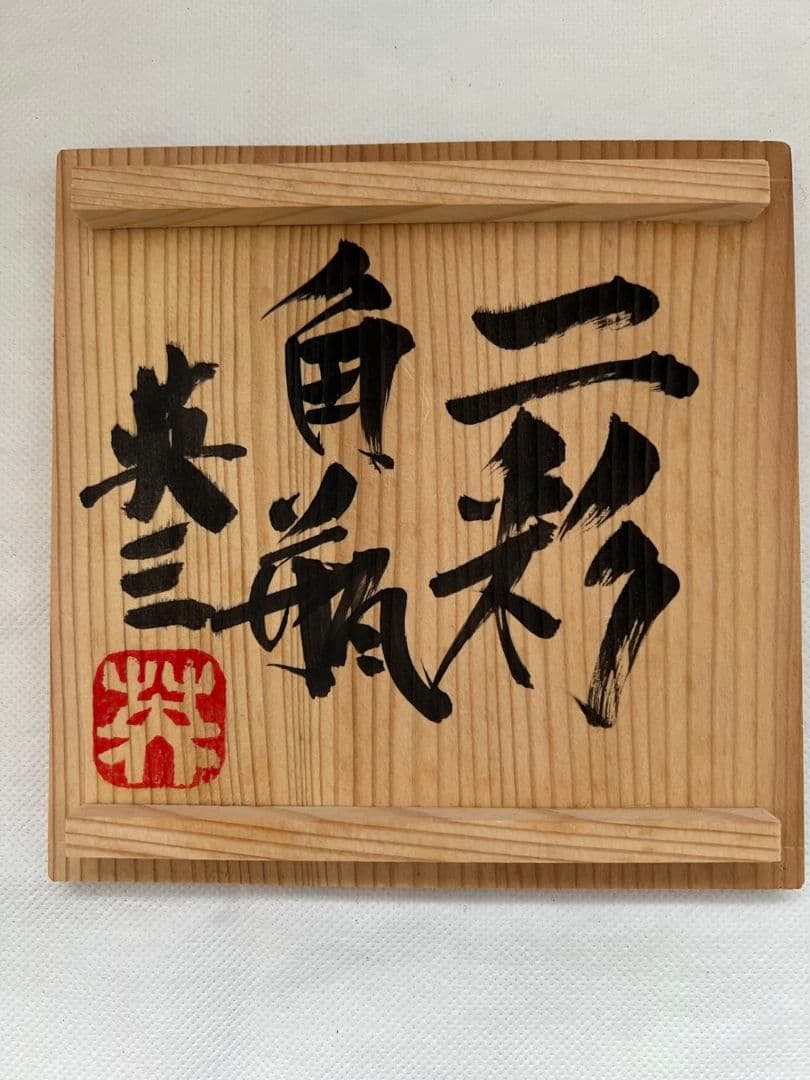 二彩
角瓶
英三